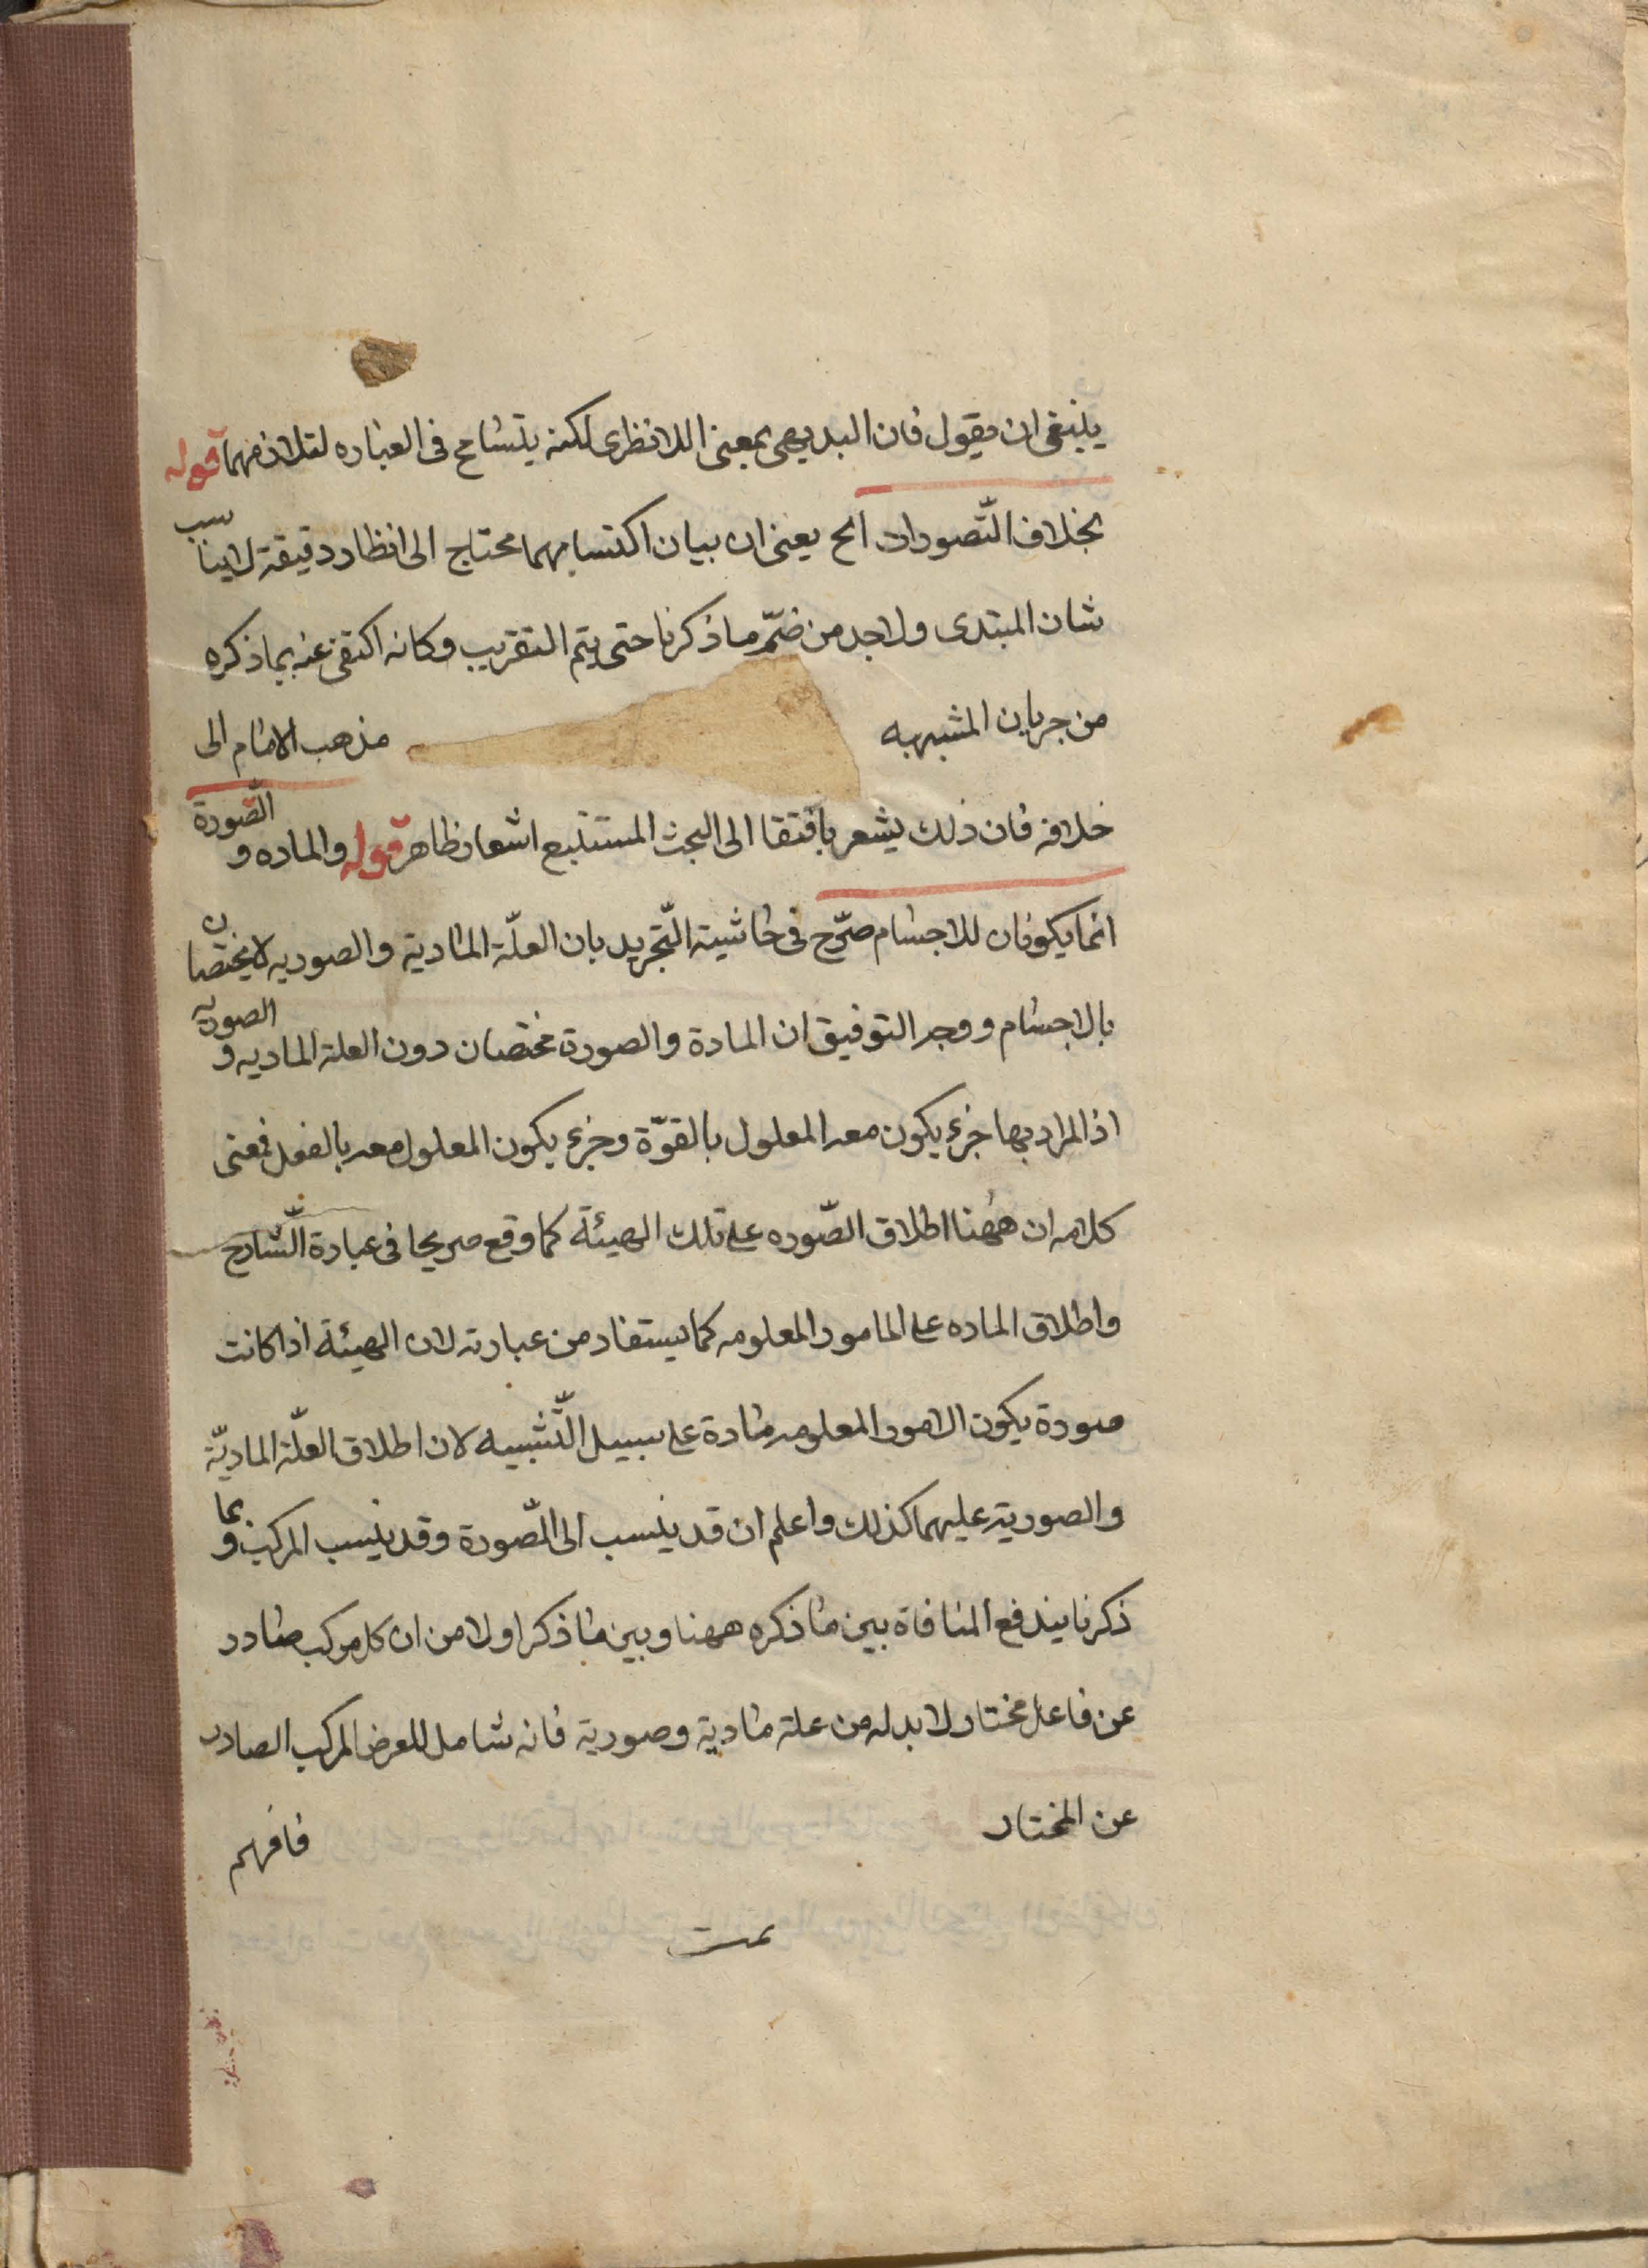 ينبغى ان يقول فان البديهى بمعنى اللانظرى لكنه يتسامح فى العباره لتلازمهما قوله
بخلاف التّصورات الح يعنى ان بيان اكتسابهما محتاج الى انظار دقيقة لايناسب
شان المبتدى ولابد من ضمّ ما ذكرنا حتى يتم التقريب وكانه اكتفى عنه بما ذكره
من جريان الشبهه مذهب الامام الى
خلافه فان ذلك يشعر بافتقا الى البحث المستتبع اشعار ظاهر قوله والماده و الصّورة
انما يكونان للاجسام صرّح فى حاشية التّجريد بان العلّة المادية والصوريه لايختصان
بالاجسام ووجه التوفيق ان المادة والصورة مختصان دون العلة الماديه و الصوريه
اذ المراد بها جزء يكون معه المعلول بالقوّة وجزء يكون المعلول معه بالفعل فمعنى
كلامه ان ههنا اطلاق الصّوره على تلك الهيئة كما وقع صريحا فى عبارة الشّارح
واطلاق الماده على المامور المعلومه كما يستفاد من عبارته لان الهيئة اذا كانت
صورة يكون الامور المعلومه مادة على سبيل التّشبيه لان اطلاق العلّة الماديّة
والصورية عليهما كذلك واعلم ان قد ينسب الى الصّورة وقد ينسب المركب و بما
ذكرنا يندفع المنافاة بين ما ذكره ههنا وبين ما ذكر اولا من ان كل مركب صادر
عن فاعل مختار لا بد له من علة مادية وصورية فانه شامل للعرض المركب الصادر
عن المختار فافهم
تمت